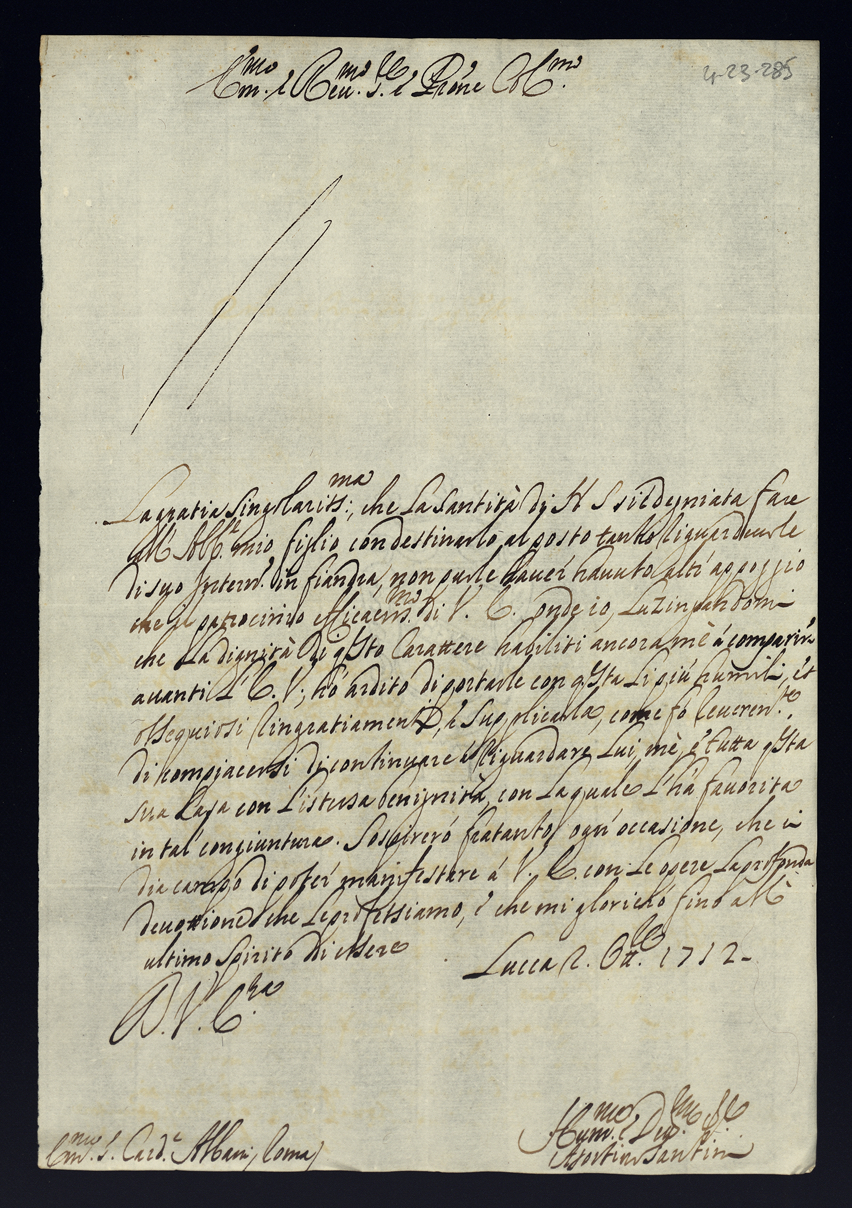 Em.mo e Reu.mo S.re e Pròne Col.mo
4-23-285
La gratia Singolariss.ma, che La Santità di N S si è degniata fare
all Abb.e mio figlio con destinarlo al posto tanto riguardeuole
di suo Intern.o in fiandra, non puole hauer hauuto altro appoggio
che il patrocinio efficaciss.mo di V. E. onde io, Lusingandomi
che La dignità di q̃sto Carattere habiliti ancora mè á comparir
auanti L'E. V., hó ardito di portarle con q̃sta Li più humili, et
ossequiosi ringratiamenti, e Supplicarla, come fó reueren.te
di compiacersi di continuare à riguardare Lui, mè, e tutta q̃sta
sua Casa con L'istessa benignità, con La quale L'hà fauorita
in tal congiuntura. Sospireró fratanto ogn'occasione, che ci
dia campo di poter manifestare á V. E. con Le opere La profonda
deuotione che Le professiamo, e che mi glorieró fino all
ultimo Spirito di essere
Lucca 2. Ott.re 1712
D. V. E.za
Hum.mo e Deu.mo Se.re
Agostino Santini
Em.mo S. Card.e Albani, Roma